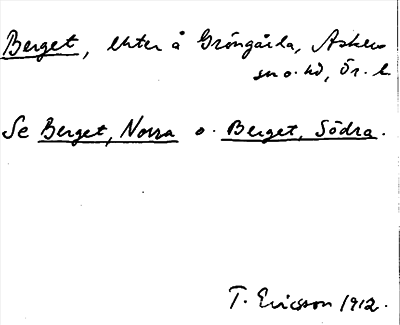 Berget, khter å Gröngårda, Askers
sn o. hd, Ör. l.
Se Berget, Norra o. Berget, Södra.
T. Ericsson 1912.